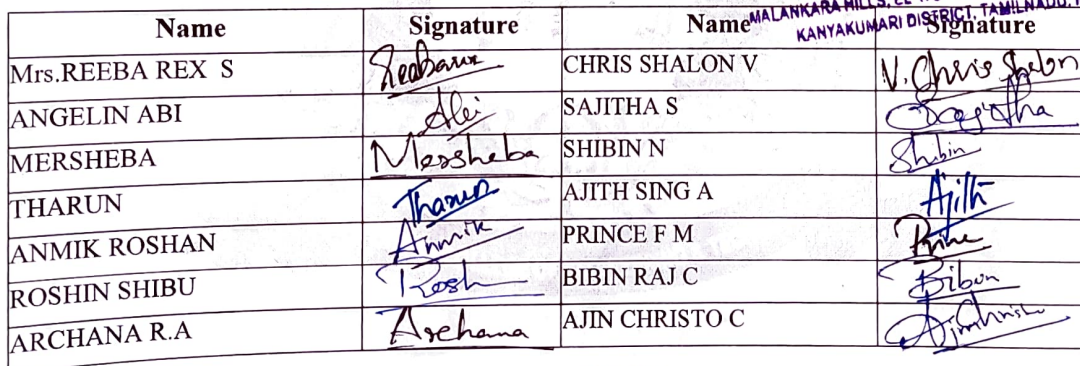 MALANKARA HILLS,
KANYAKUMARI DISTRICT, TAMILNADU,
Name Signature Name Signature
Mrs.REEBA REX S Reebarex CHRIS SHALON V V. Chris Shalon
ANGELIN ABI Abi SAJITHA S Sajitha
MERSHEBA Mersheba SHIBIN N Shibin
THARUN Tharun AJITH SING A Ajith
ANMIK ROSHAN Anmik PRINCE F M Prince
ROSHIN SHIBU Rosh BIBIN RAJ C Bibin
ARCHANA R.A Archana AJIN CHRISTO C